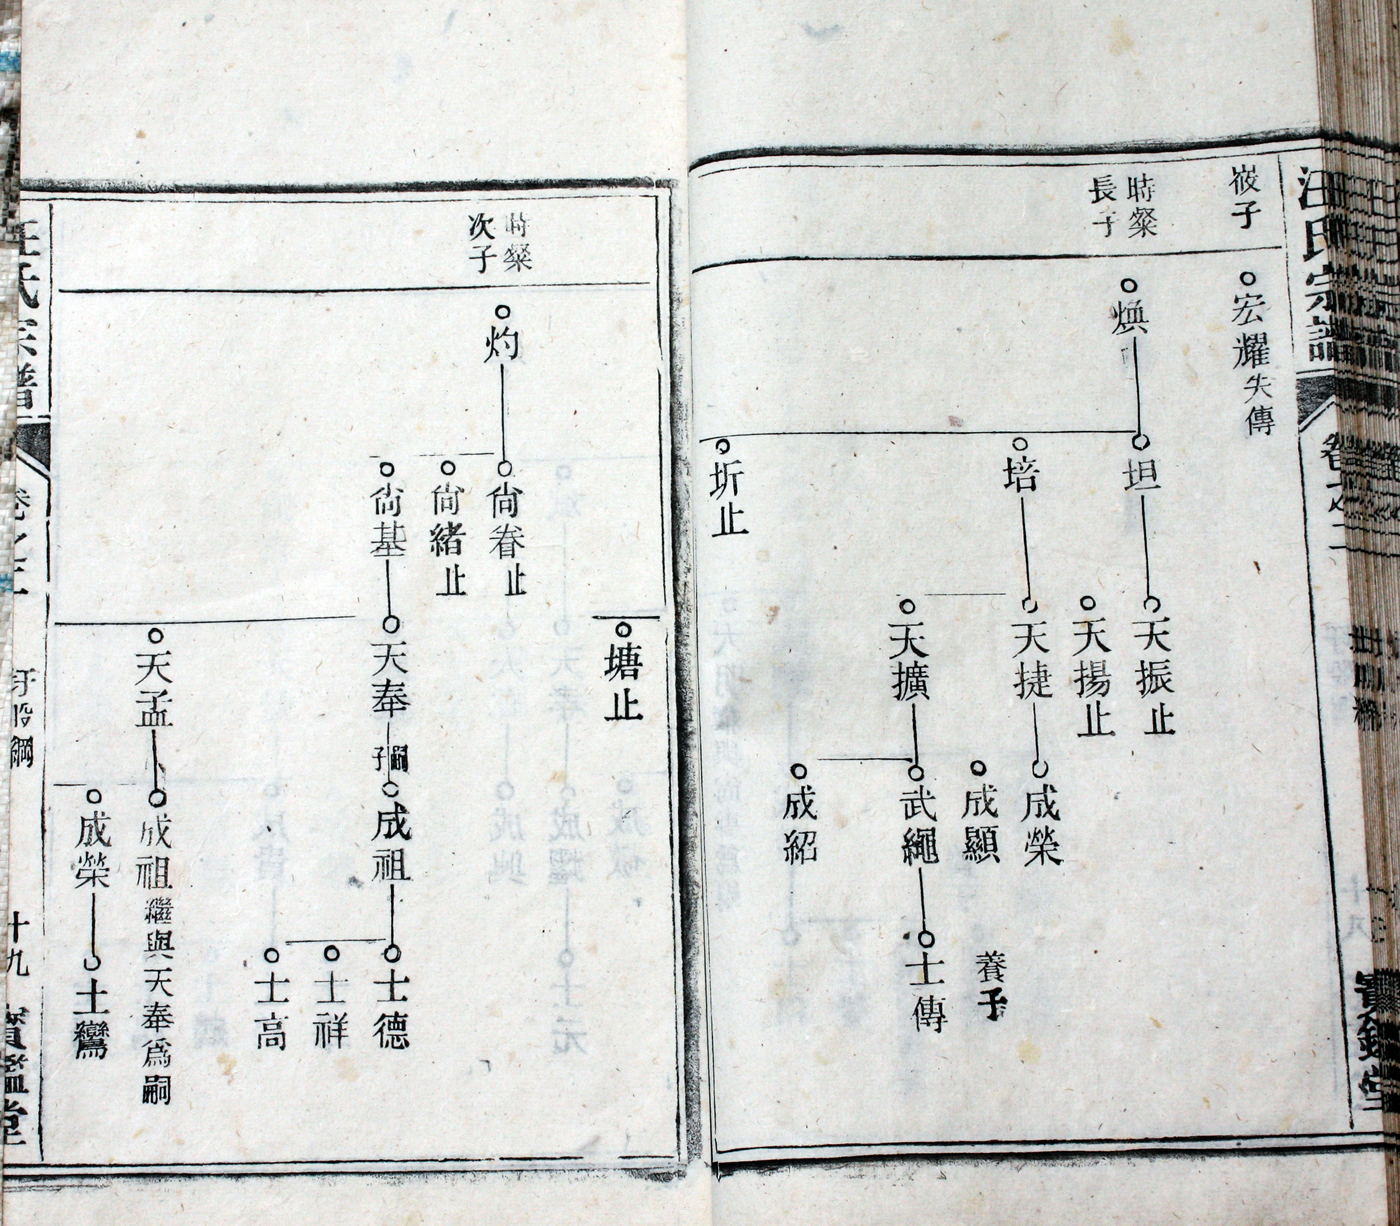 汪氏宗譜
卷之二
寶鑑堂
峧子
宏耀失傳
時粲
長子
煥
坦
培
圻止
天振止
天揚止
天捷
天擴
成榮
成顯
武繩
成紹
養子
士傳
塘止
時粲
次子
灼
尙眷止
尙緒止
尙基
天奉
嗣子
成祖
天孟
成祖繼與天奉爲嗣
成榮
士德
士祥
士高
士鸞
汪氏宗譜
卷之二
十九
寶鑑堂